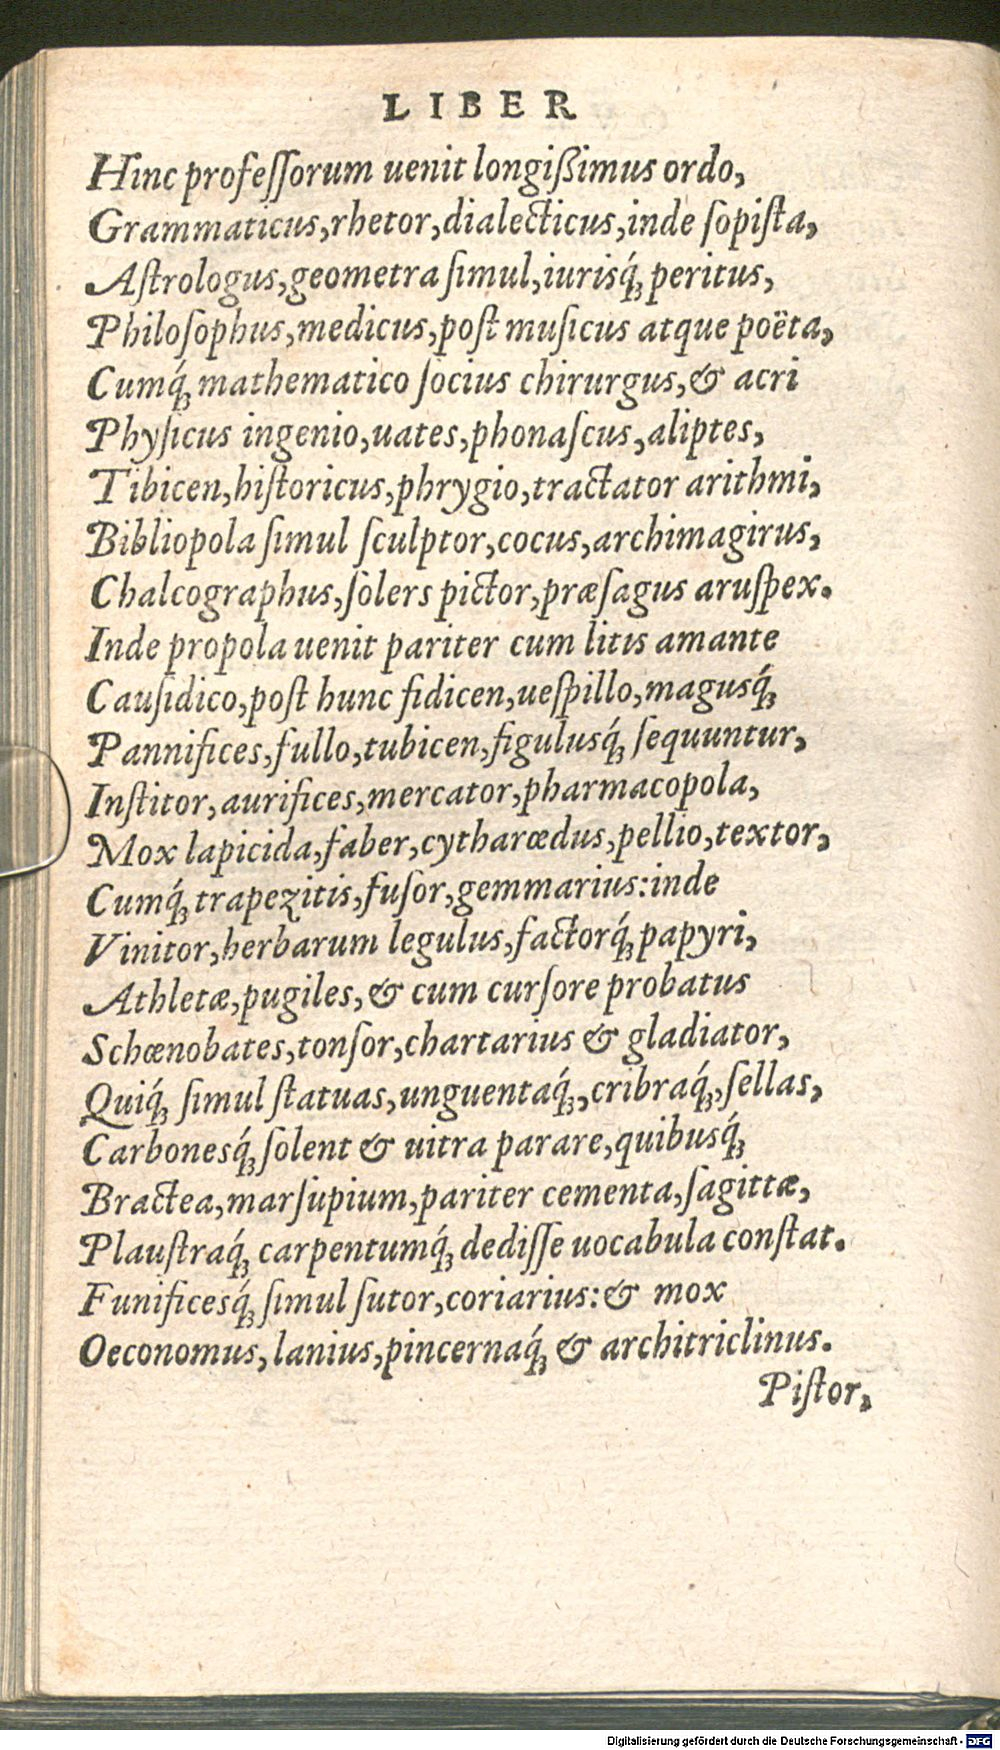 LIBER
Hinc profeſſorum uenit longißimus ordo,
Grammaticus, rhetor, dialecticus, inde ſopiſta,
Aſtrologus, geometra ſimul, iurisq́ꝫ peritus,
Philoſophus, medicus, poſt muſicus atque poëta,
Cumq́ꝫ mathematico ſocius chirurgus, & acri
Phyſicus ingenio, uates, phonaſcus, aliptes,
Tibicen, hiſtoricus, phrygio, tractator arithmi,
Bibliopola ſimul ſculptor, cocus, archimagirus,
Chalcographus, ſolers pictor, præſagus aruſpex.
Inde propola uenit pariter cum litis amante
Cauſidico, poſt hunc fidicen, ueſpillo, magusq́ꝫ
Pannifices, fullo, tubicen, figulusq́ꝫ ſequuntur,
Inſtitor, aurifices, mercator, pharmacopola,
Mox lapicida, faber, cytharœdus, pellio, textor,
Cumq́ꝫ trapezitis, fuſor, gemmarius: inde
Vinitor, herbarum legulus, factorq́ꝫ papyri,
Athletæ, pugiles, & cum curſore probatus
Schœnobates, tonſor, chartarius & gladiator,
Quiq́ꝫ ſimul ſtatuas, unguentaq́ꝫ, cribraq́ꝫ, ſellas,
Carbonesq́ꝫ ſolent & uitra parare, quibusq́ꝫ
Bractea, marſupium, pariter cementa, ſagittæ,
Plauſtraq́ꝫ carpentumq́ꝫ dediſſe uocabula conſtat.
Funificesq́ꝫ ſimul ſutor, coriarius: & mox
Oeconomus, lanius, pincernaq́ꝫ & architriclinus.
Piſtor,
Digitalisierung gefördert durch die Deutsche Forschungsgemeinschaft - DFG